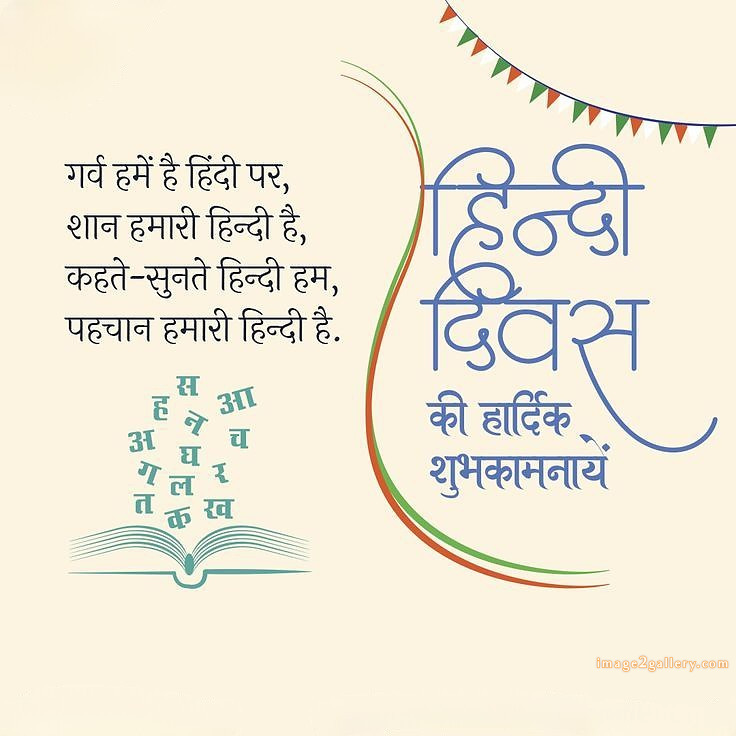 गर्व हमें है हिंदी पर,
शान हमारी हिन्दी है,
कहते-सुनते हिन्दी हम,
पहचान हमारी हिन्दी है.
हिन्दी
दिवस
की हार्दिक
शुभकामनायें
स
ह न आ
अ घ च
ग ल र
त क ख
image2gallery.com